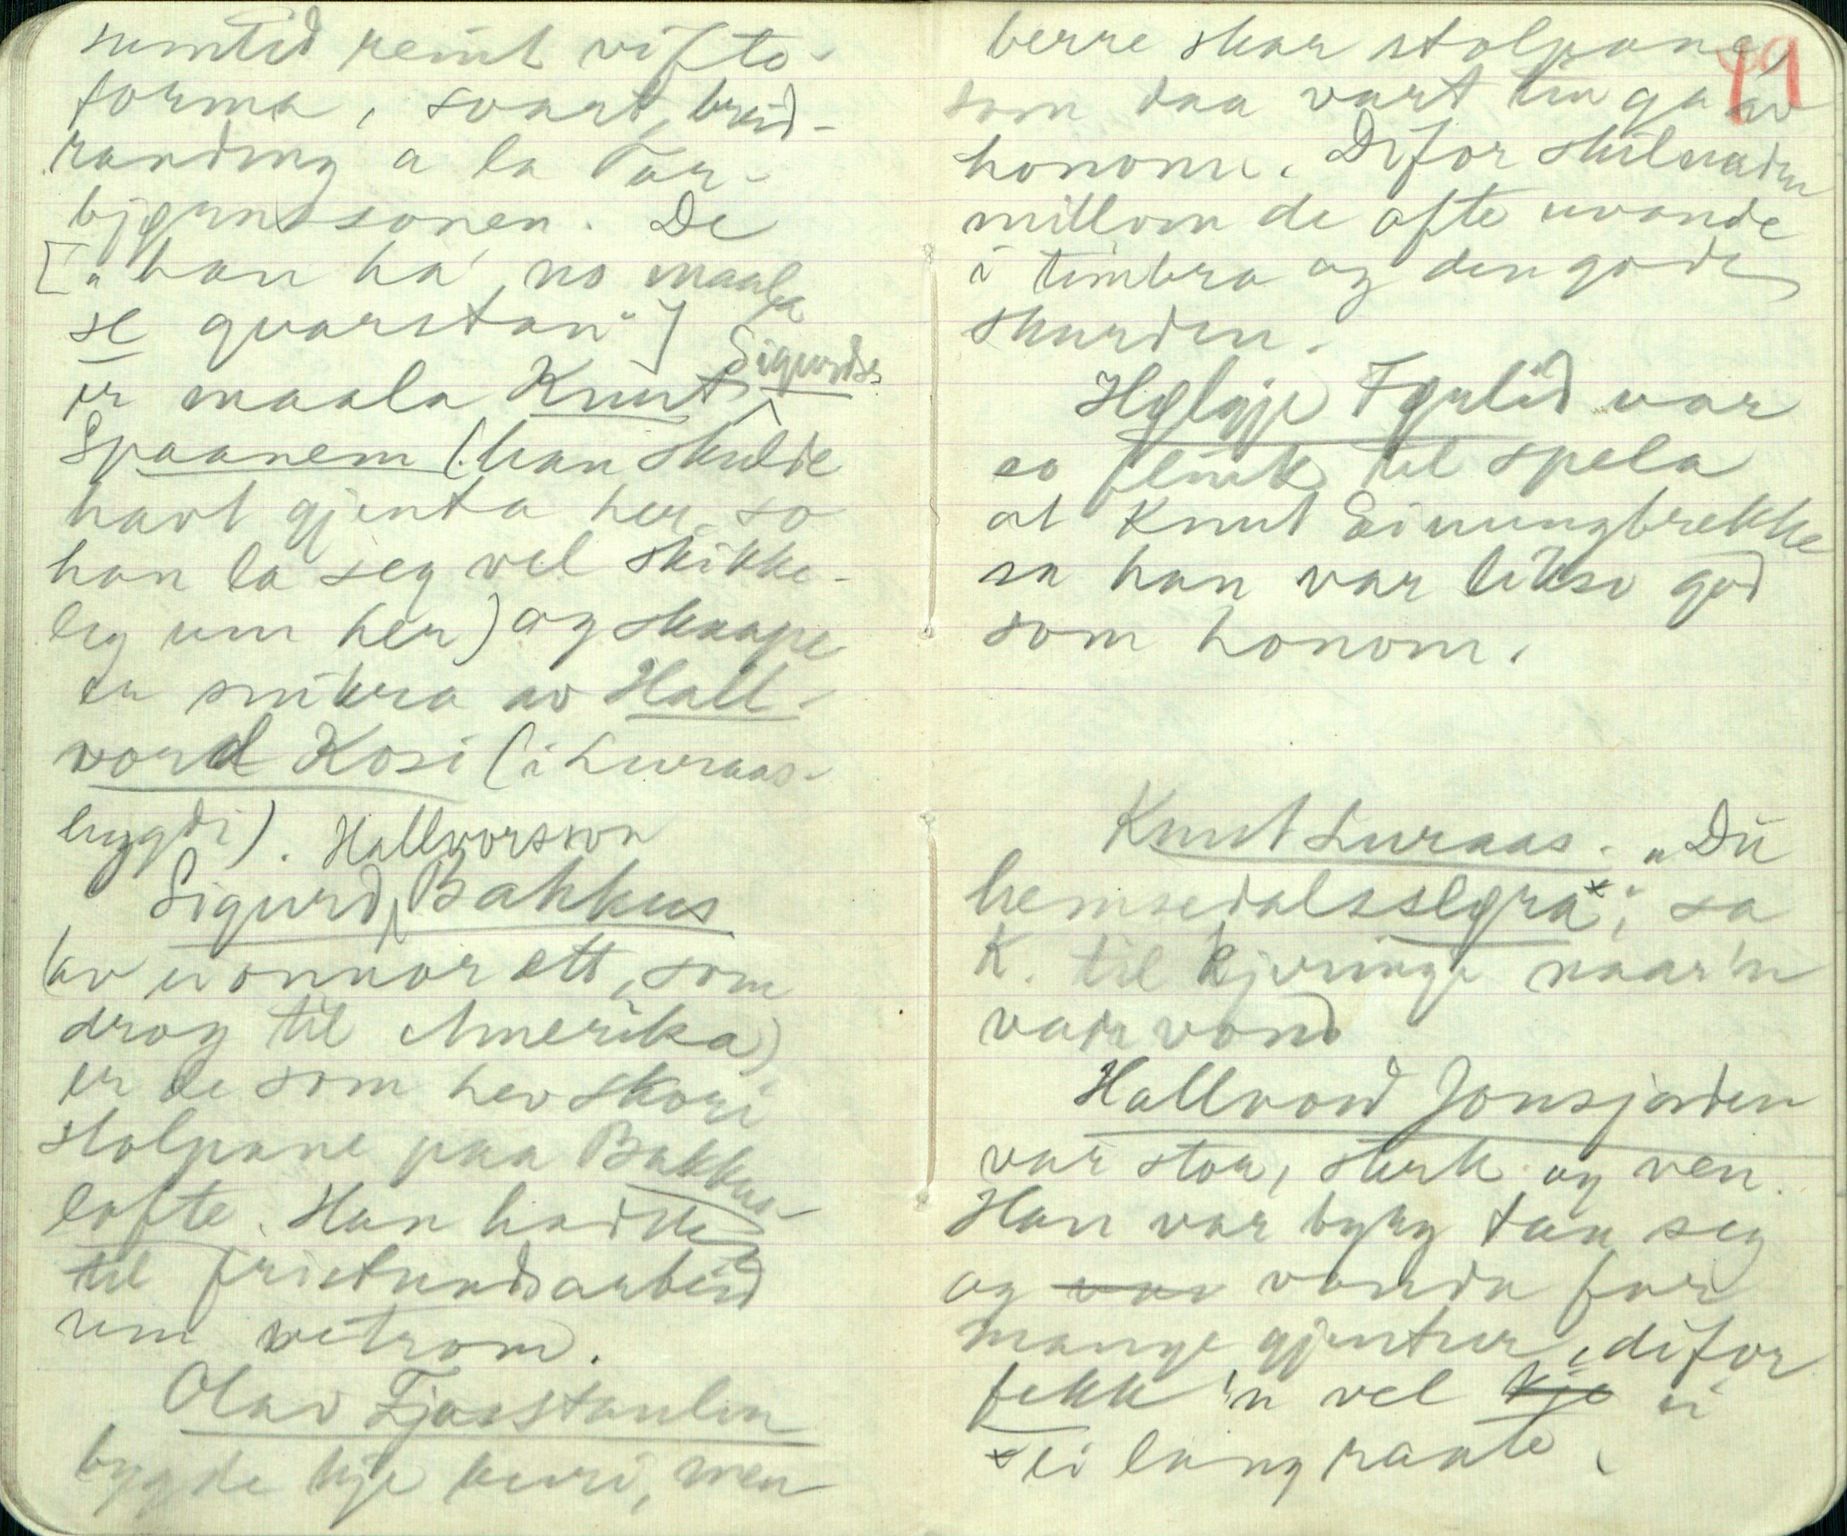 sumtid reint vifte-
forma, svart, breid-
randing a la Tor-
bjørnssonen. De
["han ha no maala
se qvarstan"]
er maala Knut Sigurds.
Spaanem (han skulde
havt gjenta her, so
han la seg vel skikke-
leg um her) og skaape
er snikra av Hall-
vord Kosi (i Luraas-
bygdi).
Sigurd Hallvorson Bakkus
(av ei onnor ætt, som
drog til Amerika)
er de som hev skori
stolpane paa Bakkus-
lofte. Han hadde
til fristundsarbeid
um vetrom.
Olav Tjosstaulen
bygde kje buri, men
49
berre skar stolpane
som daa vart tinga av
honom. Difor skilnaden
millom de ofte uvande
i timbra og den gode
skurden.
Hølgje Førlid var
so flink til spela
at Knut Einungbrekke
sa han var likso god
som honom.
Knut Luraas. "Du
hemsedalssløra*", sa
K. til kjeringe naar'n
var vond
Hallvord Jonsjorden
var stor, sterk og ven.
Han var byrg tau seg
og var vonda for
mange gjentur, difor
fekk 'n vel kje ei
* ei lang raate.